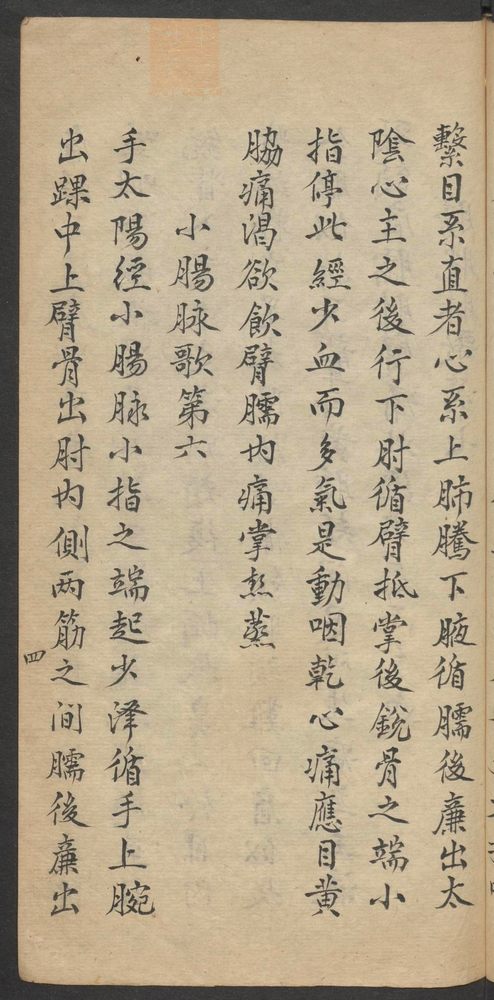 繫目系直者心系上肺騰下腋循臑後廉出太
陰心主之後行下肘循臂抵掌後銳骨之端小
指停此經少血而多氣是動咽乾心痛應目黄
脇痛渴欲飲臂臑内痛掌熱蒸
小腸脉歌第六
手太陽經小腸脉小指之端起少澤循手上腕
出踝中上臂骨出肘内側两筋之间臑後廉出
四